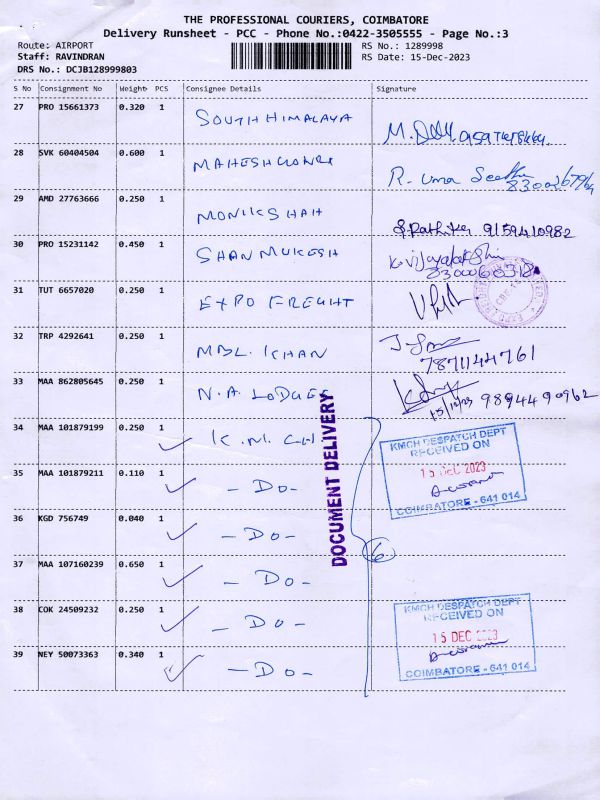 THE PROFESSIONAL COURIERS, COIMBATORE
Delivery Runsheet - PCC - Phone No.:0422-3505555 - Page No.:3
Route: AIRPORT RS No.: 1289998
Staff: RAVINDRAN RS Date: 15-Dec-2023
DRS No.: DCJB128999803
S No Consignment No Weight PCS Consignee Details Signature
27 PRO 15661373 0.320 1 SOUTH HIMALAYA
28 SVK 60404504 0.600 1 R. Uma
29 AMD 27763666 0.250 1 MONIKSHAH 9159410982
30 PRO 15231142 0.450 1 SHANMUKESH
31 TUT 6657020 0.250 1 EXPO FREIGHT
32 TRP 4292641 0.250 1 7871144761
33 MAA 862805645 0.250 1 N.A. LODGES 15/12/23 9894490962
34 MAA 101879199 0.250 1 K.M.CH
35 MAA 101879211 0.110 1 - DO -
36 KGD 756749 0.040 1 - DO -
37 MAA 107160239 0.650 1 - DO -
38 COK 24509232 0.250 1 - DO -
39 NEY 50073363 0.340 1 - DO -
DOCUMENT DELIVERY
6
KMCH DESPATCH DEPT
RECEIVED ON
15 DEC 2023
COIMBATORE - 641 014
KMCH DESPATCH DEPT
RECEIVED ON
15 DEC 2023
COIMBATORE - 641 014